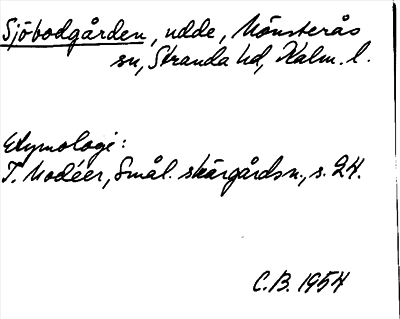 Sjöbodgården, udde, Mönsterås
sn, Stranda hd, Kalm. l.
Etymologi:
I. Modéer, Smål. skärgårdsn., s. 24.
C.B. 1954